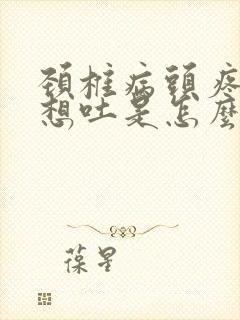 頚椎病頭疼
想吐是怎麼
葆星